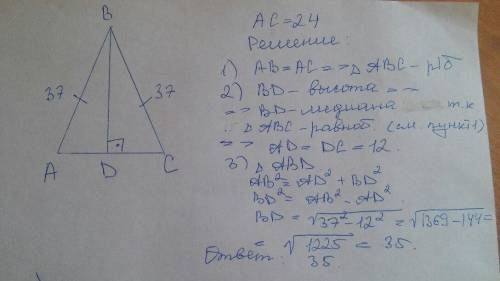 B
37
37
A
D
C
AC=24
Решение:
1) AB=AC=>△ABC-р/б
2) BD-высота =>
=> BD-медиана т.к
△ABC-равноб. (см. пункт 1)
=> AD=DC=12.
3) △ABD
AB²=AD²+BD²
BD²=AB²-AD²
BD=√37²-12²=√1369-144=
=√1225=35.
Ответ: 35.